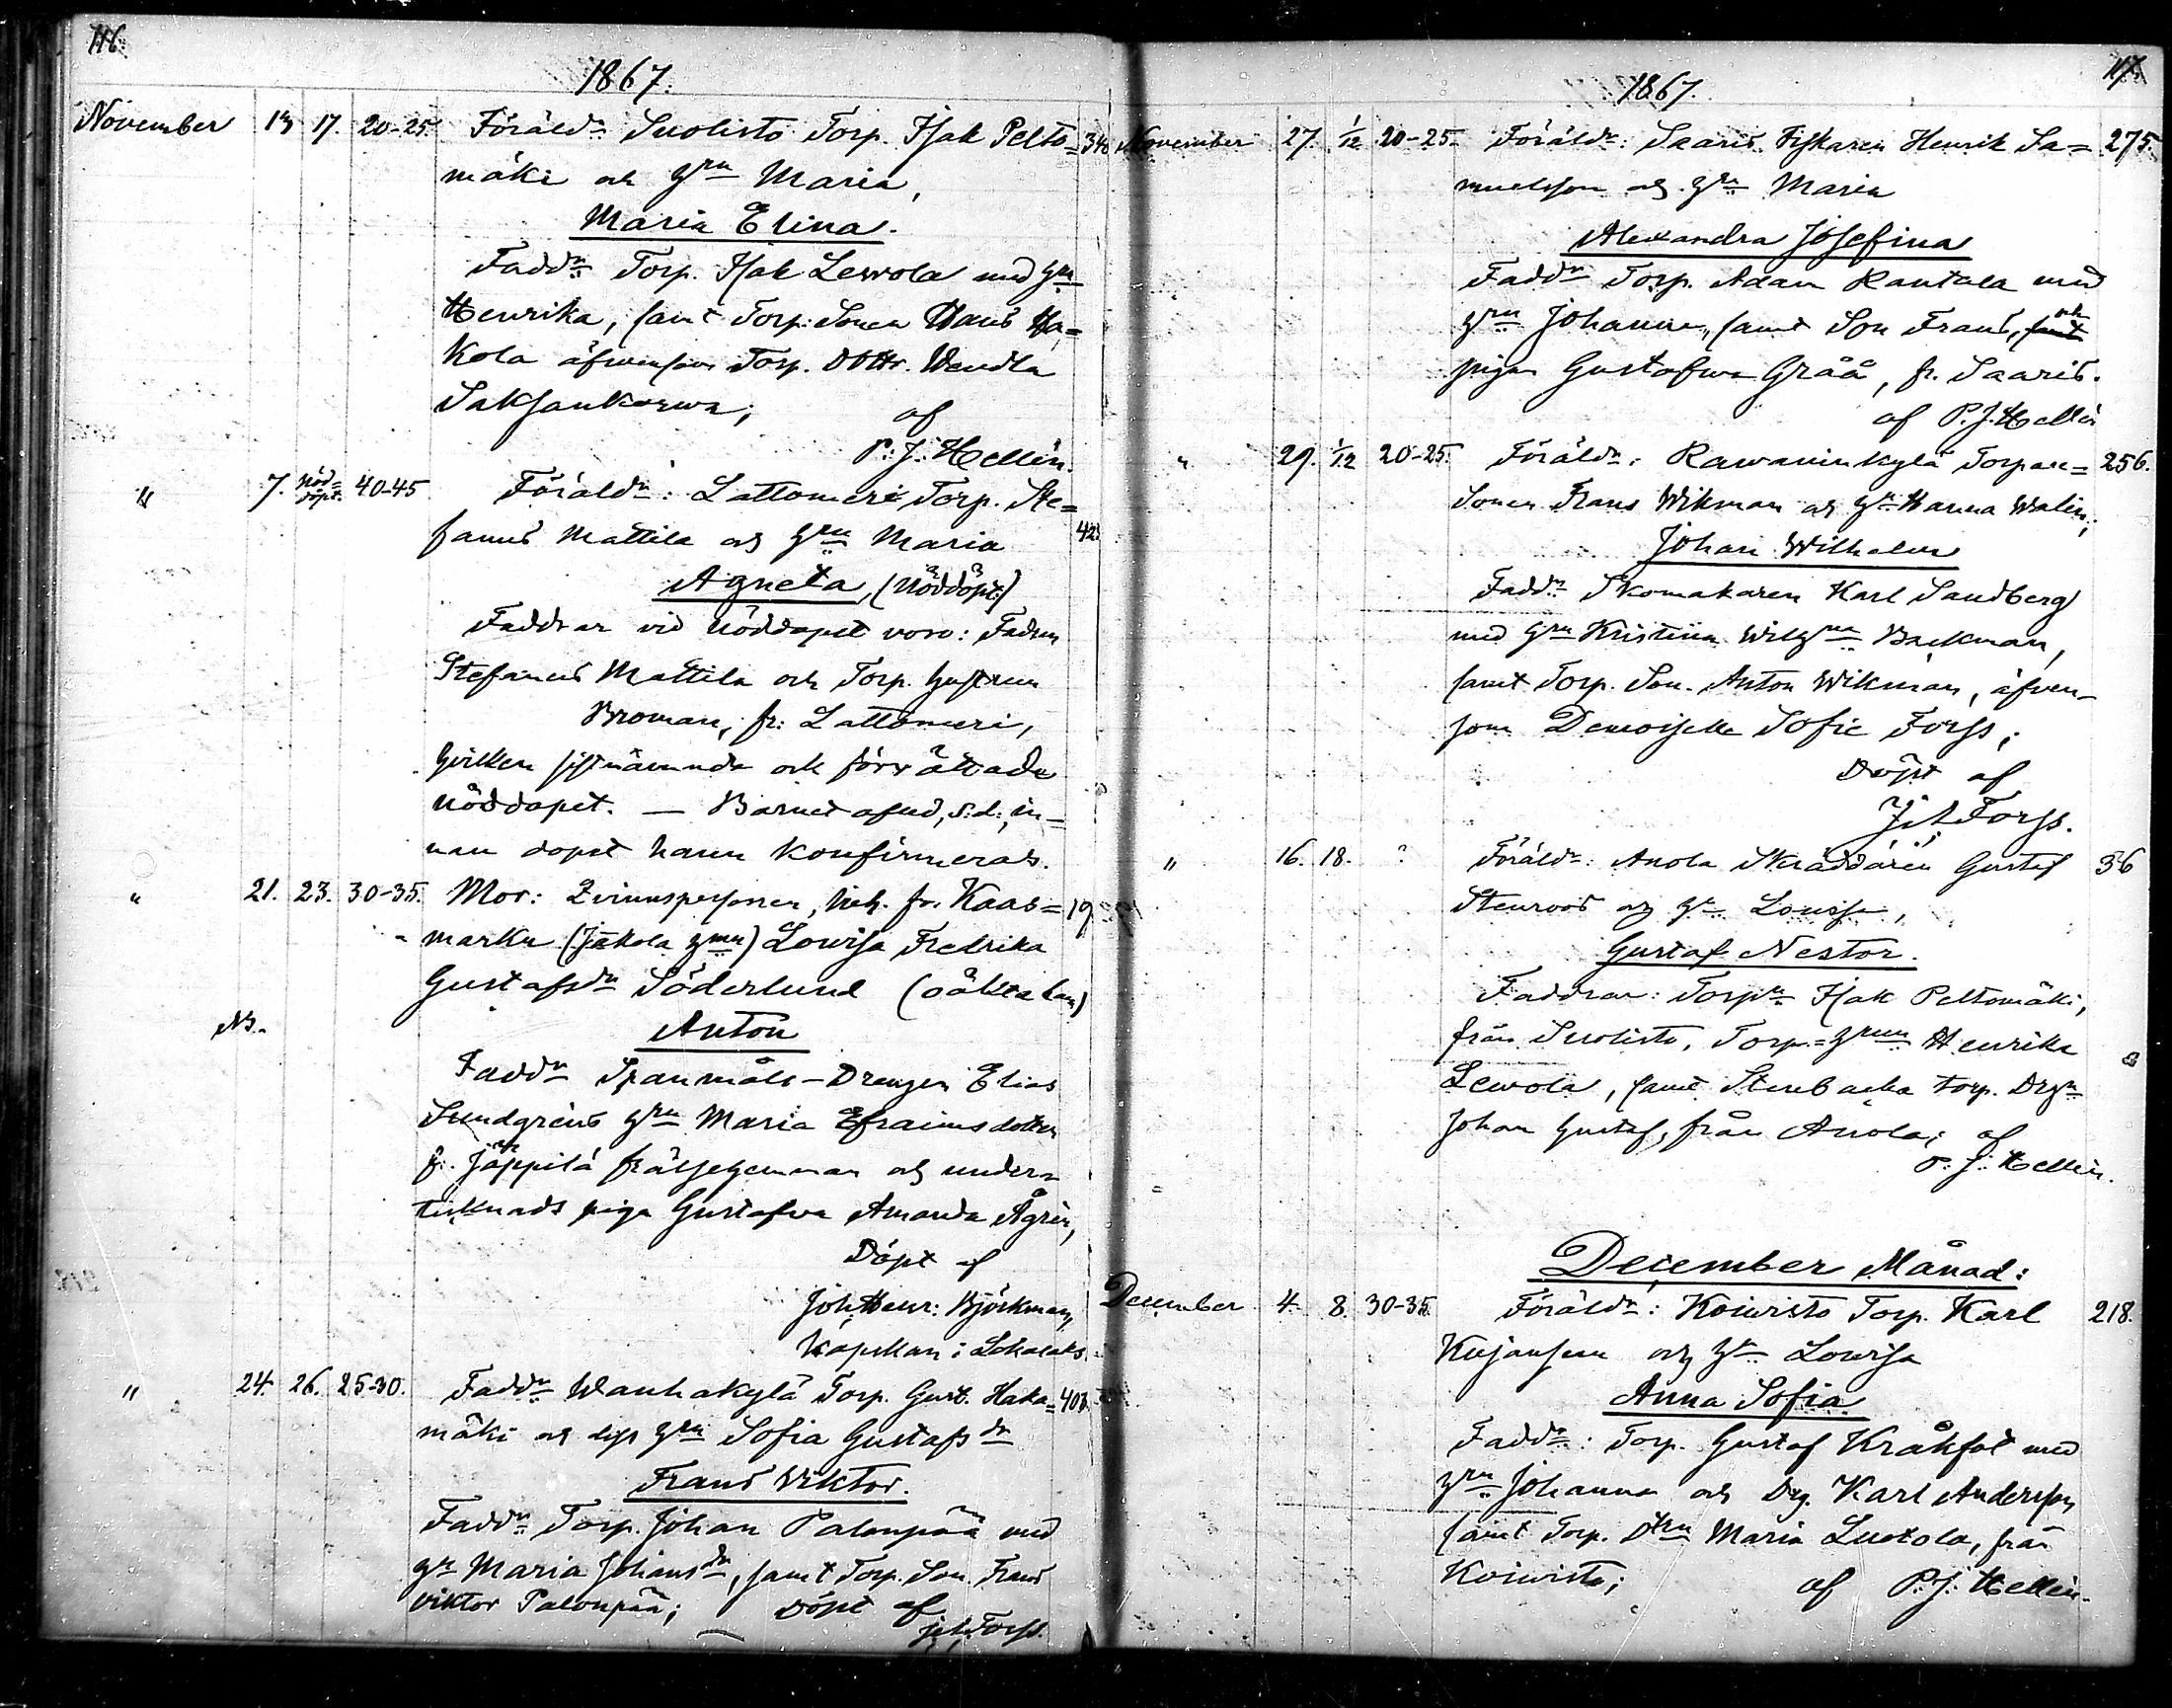 116.
1867.
November 13 17. 20-25. Föräld:r Suolisto Torp. Isak Pelto= 346
mäki och h:run Maria,
Maria Elina.
Fadd:r Torp. Isak Lewola med h:ru
Henrika, samt Torp: Sonen Hans Ha=
kola äfvensom Torp. Dottr. Wendla
Saksankorwa; af
P. J. Hellén.
" 7. Nöd=döpt. 40-45 Föräld:r: Lattomeri Torp. Ste= 423
fanus Mattila och h:run Maria
Agneta, (Nöddöpt:)
Faddrar vid nöddopet voro: Fadren
Stefanus Mattila och Torp. hustrun
Broman, fr: Lattomeri,
hvilken sistnämnda och förrättade
nöddopet. — Barnet afled, s:d:, in=
nan dopet hann konfirmeras.
" 21. 23. 30-35. Mor: Qvinnspersonen, fr. Kaas= 19
marku (Jaakola hmn) Lowisa Fredrika
Gustafsdr Söderlund (oäkta barn)
Nb.
Anton
Fadd:r Spanmåls-Drengen Elias
Sundgréns h:ru Maria Efraimsdotter
fr. Jäppilä frälsehemman och
piga Gustafva Amanda Ågrén,
Döpt af
Joh: Henr: Björkman,
Kapellan i Lokalaks.
" 24. 26. 25-30. Fadd:r Wanhakylä Torp. Gust. Haka= 403.
mäki och dess h:ru Sofia Gustafsdr
Frans Viktor.
Fadd:r Torp. Johan Palonpää med
h:r Maria Johansdr, samt Torp. Son. Frans
Viktor Palonpää; Döpt af
J. A. Forss.
117.
1867.
November 27. 1/12 20-25. Föräld:r: Saaris Fiskaren Henrik Sa= 275.
muelsson och h:ru Maria
Alexandra Josefina
Fadd:r Torp. Adam Rantala med
h:run Johanna, samt Son Frans, samt och
pigan Gustafva Gråå, fr. Saaris.
af P. J. Hellén
" 29. 1/12 20-25. Föräld:r: Rawaninkylä Torpare= 256.
Sonen Frans Wikman och h:r Hanna Walin,
Johan Wilhelm
Fadd:r Skomakaren Karl Sandberg
med h:ru Kristina Backman,
samt Torp. Son. Anton Wikman, äfven-
som Demoiselle Sofie Forss;
Döpt af
J. A. Forss.
" 16. 18. ? Föräld:r: Anola Skräddaren Gustaf 36
Stenroos och h:r Lovisa,
Gustaf Nestor.
Faddrar: Torp:n Isak Peltomäki,
från Suolisto, Torp=h:run Henrika
Lewola, samt Stenbacka torp. Drg:n
Johan Gustaf, från Anola; af
P. J. Hellén.
December Månad:
December 4. 8. 30-35. Föräld:r: Koivisto Torp. Karl 218.
Kujansuu och h:r Lowisa
Anna Sofia
Fadd:r: Torp. Gustaf Kråkfot med
h:ru Johanna och Drg. Karl Andersson,
samt Torp. Dtrn Maria Luotola, från
Koivisto; af P. J. Hellén.